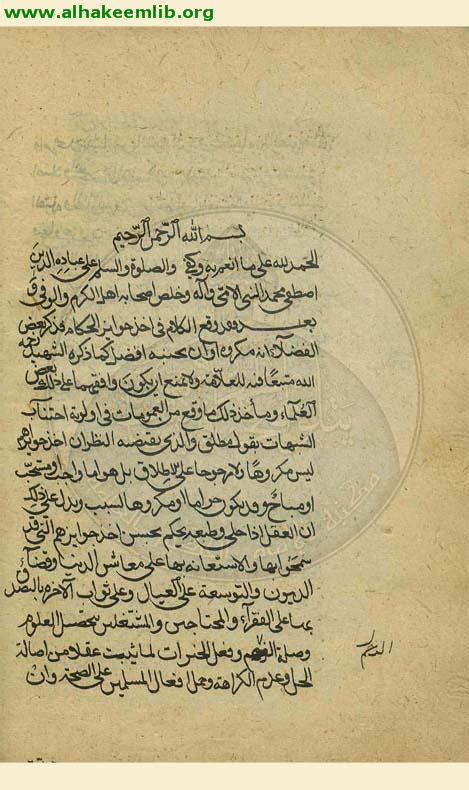 www.alhakeemlib.org
بسم الله الرحمن الرحيم
الحمد لله على ما انعم به ووفى والصلوة والسلم على عباده الذين
اصطفى محمد النبي الامي وآله وخلص اصحابه اهل الكرم والوفى و
بعد فقد وقع الكلام في اخذ جوايز الحكام فذكر بعض
الفضلاء انه مكروه وان تجنبه افضل كما ذكره الشهيد رحمه
الله متبعا فيه للعلامة ولا يمنع ان يكون وافقهما على ذلك بعض
العلماء وماخذ ذلك ما وقع من العمومات في اولوية اجتناب
الشبهات بقول مطلق والذي يقتضيه النظر ان اخذ جوايزهم
ليس مكروها ولا مرجوحا على الاطلاق بل هو اما واجب او مستحب
او مباح وقد يكون حراما او مكروها لسبب ويدل على ذلك
ان العقل اذا خلي وطبعه يحكم بحسن اخذ جوايزهم التي قد
سمحوا بها والاستعانة بها على معاش الدنيا وقضاء
الديون والتوسعة على العيال وعلى ثواب الآخرة بالتصدق
بها على الفقراء والمحتاجين والمشتغلين بتحصيل العلوم
وصلة وفعل الخيرات لما ثبت عقلا من اصالة
الحل وعدم الكراهة وحمل افعال المسلمين على الصحة وان